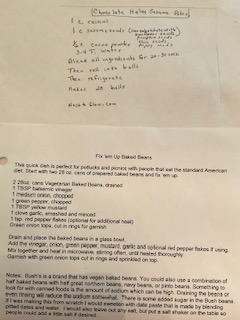 Chocolate Hates Sesame Balls
1 c
1 c sesame seeds (can substitute with
sunflower seeds
pumpkin seeds
chia seeds
poppy seeds
cocoa powder
3-4 T. water
Blend all ingredients for 20-30 seconds
Then roll into balls
Then refrigerate
Makes 20 balls
Fix 'em Up Baked Beans
This quick dish is perfect for potlucks and picnics with people that eat the standard American
diet. Start with two 28 oz. cans of prepared baked beans and fix 'em up.
2 28oz. cans Vegetarian Baked Beans, drained
1 TBSP balsamic vinegar
1 medium onion, chopped
1 green pepper, chopped
1 TBSP yellow mustard
1 clove garlic, smashed and minced
1 tsp. red pepper flakes (optional for additional heat)
Green onion tops, cut in rings for garnish
Drain and place the baked beans in a glass bowl.
Add the vinegar, onion, green pepper, mustard, garlic and optional red pepper flakes if using.
Mix together and heat in microwave, stirring often, until heated thoroughly.
Garnish with green onion tops cut in rings and sprinkled on top.
Notes: Bush's is a brand that has vegan baked beans. You could also use a combination of
half baked beans with half great northern beans, navy beans, or pinto beans. Something to
look for with canned foods is the amount of sodium which can be high. Draining the beans or
even rinsing will reduce the sodium somewhat. There is some added sugar in the Bush beans.
If I was making this from scratch I would sweeten with date paste that is made by blending
pitted dates and water. I would also leave out any salt, but put a salt shaker on the table so
people could add a little salt if desired.